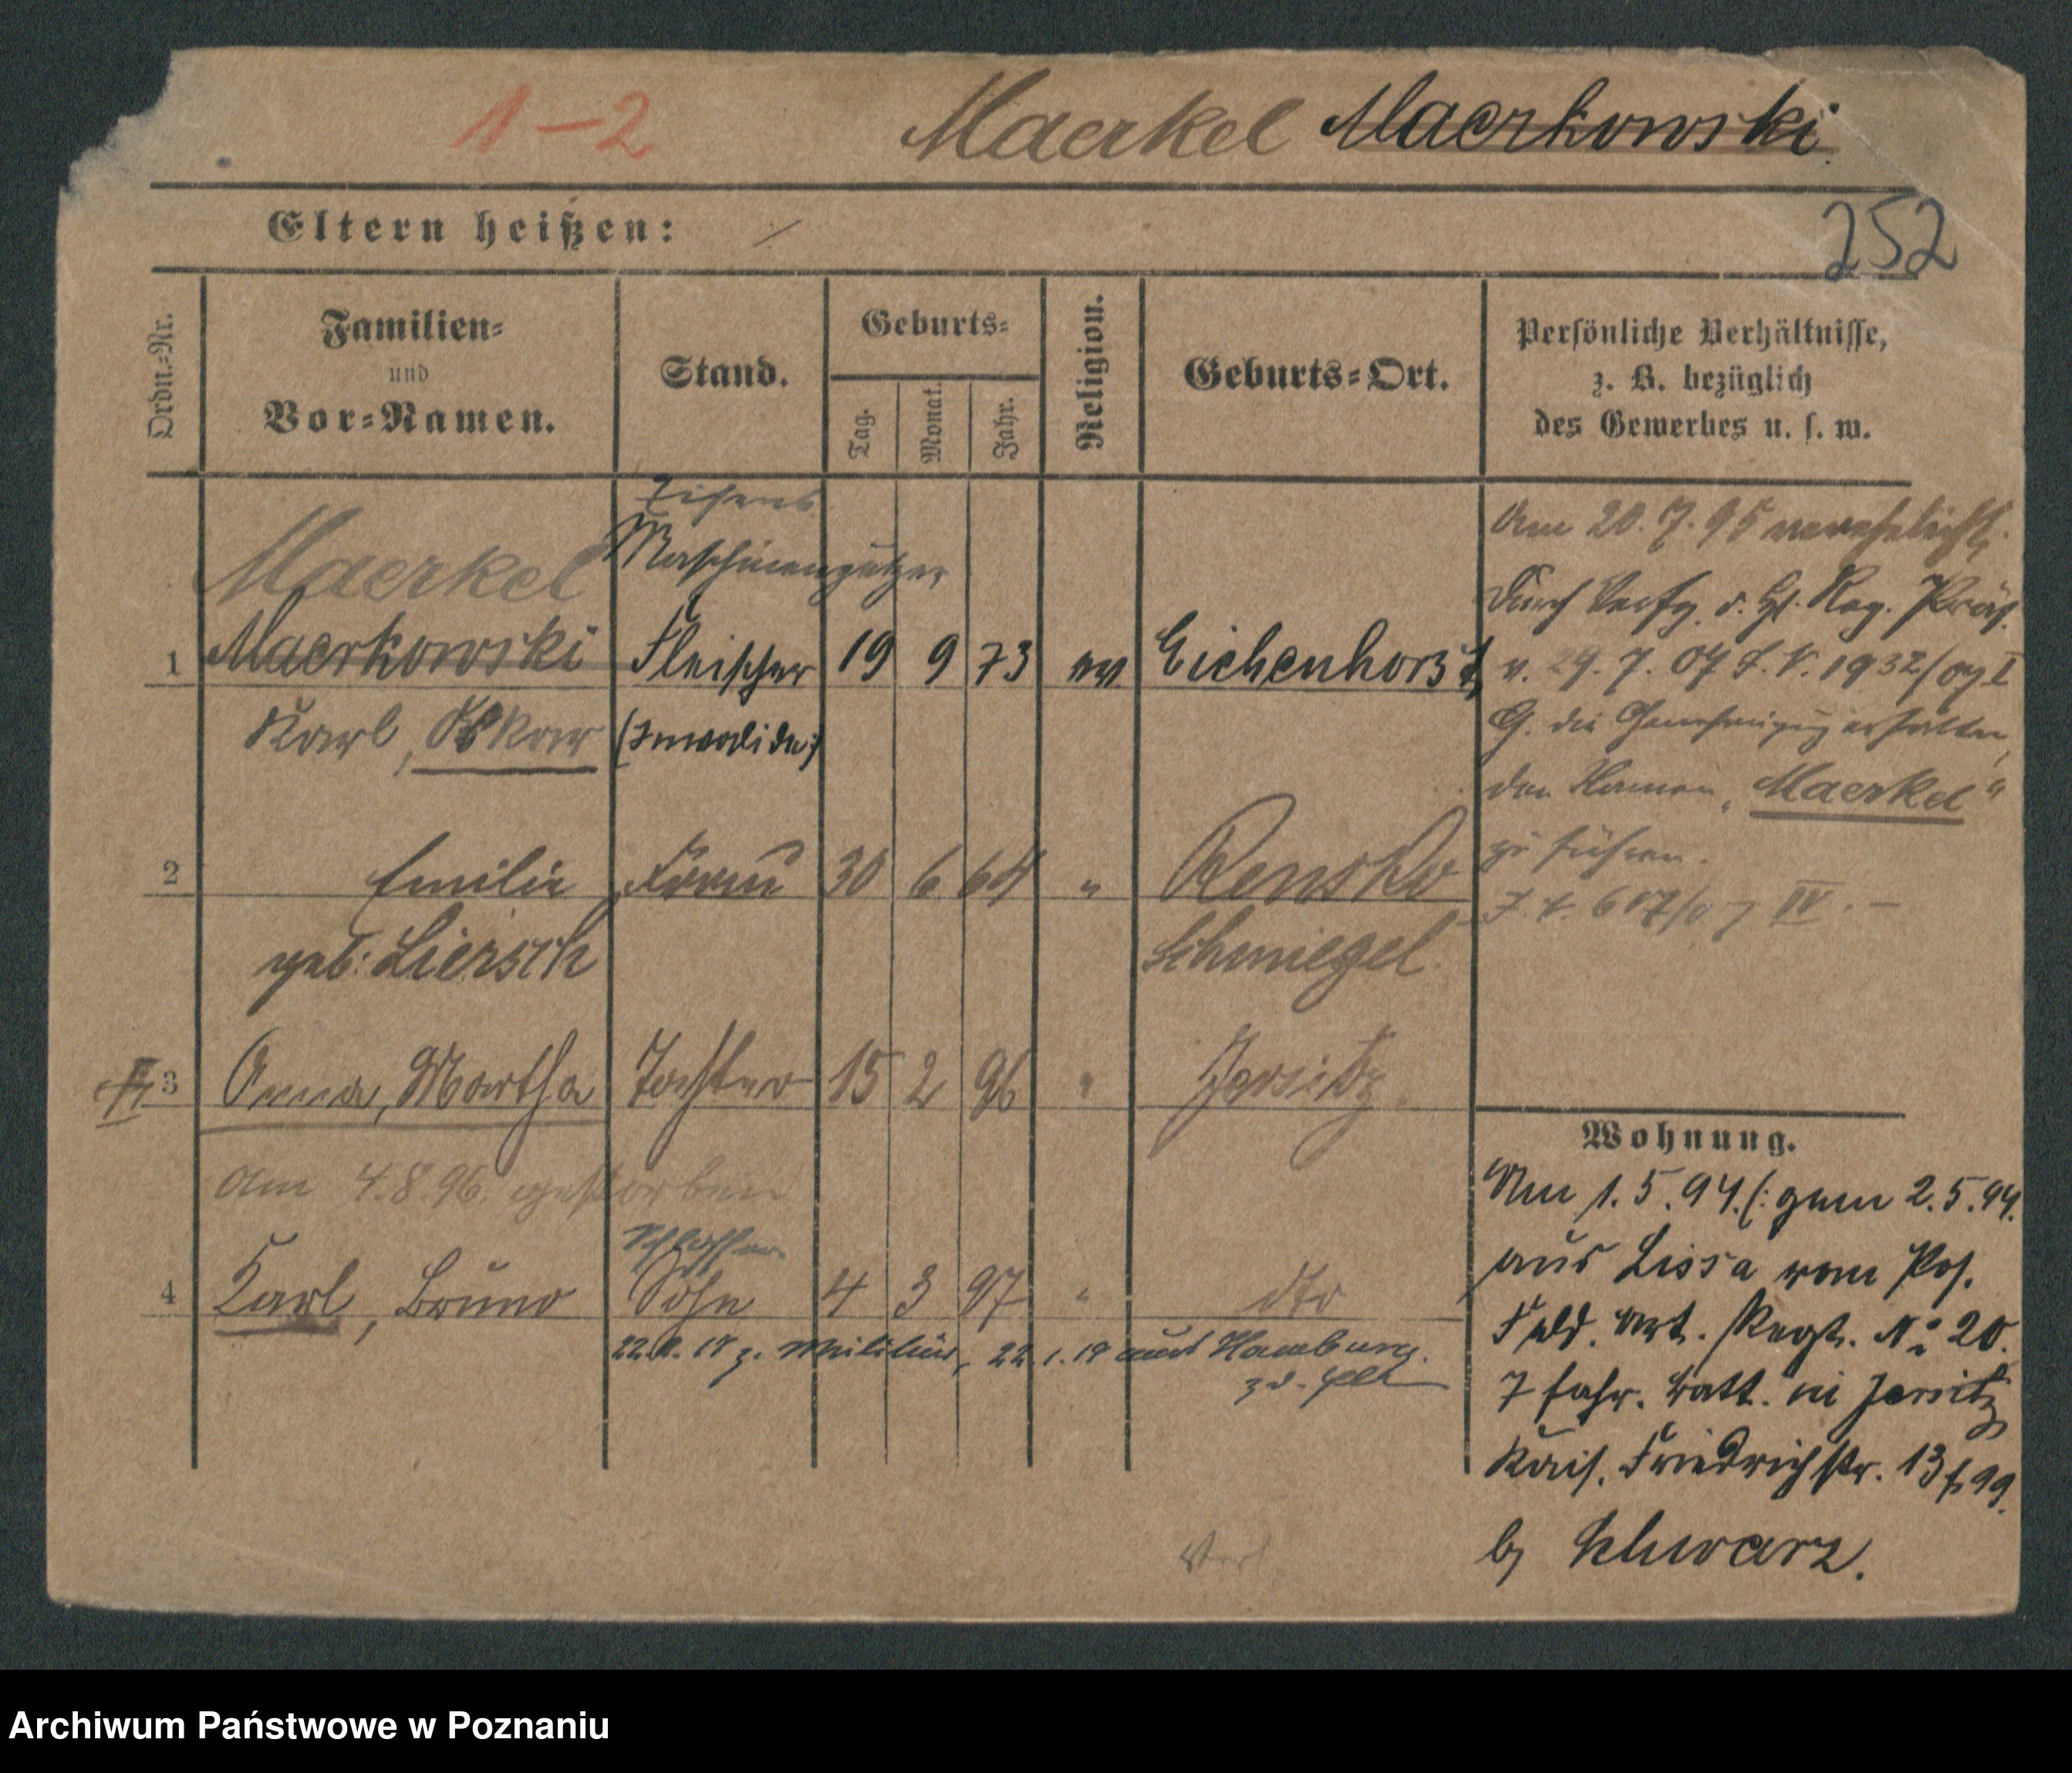 1-2 Maerkel Maerkowski
Eltern heißen: /
252
Ordn.-Nr.
Familien-
und
Vor-Namen.
Stand.
Geburts-
Tag.
Monat.
Jahr.
Religion.
Geburts-Ort.
Persönliche Verhältnisse,
z. B. bezüglich
des Gewerbes u. s. w.
Maerkel
Maschinenputzer
1 Maerkowski Fleischer 19 9 73 ev. Eichenhorst
Karl, Oskar (Invalide)
2 Emilie Frau 30 6 64 " Rensko
geb: Liersch Schmiegel
3 Anna, Martha Tochter 15 2 96 " Jersitz
am 4.8.96. gestorben
Schlosser
4 Karl, Bruno Sohn 4 3 97 " dto
z. Militär, 22.1.19 aus Hamburg
Am 20.7.95 verehelicht,
Durch Verfg. d. H. Reg. Präs.
v. 29.7.07 J. N. 1932/07 I
G. die Genehmigung erhalten,
den Namen "Maerkel"
zu führen.
J. N. 607/07 IV. -
Wohnung.
Am 1.5.94. (: gem 2.5.94.
aus Lissa vom Pos.
Feld. Art. Regt. No 20.
7 fahr. Batt. in Jersitz
Kais. Friedrichstr. 13
b/ Schwarz.
Archiwum Państwowe w Poznaniu